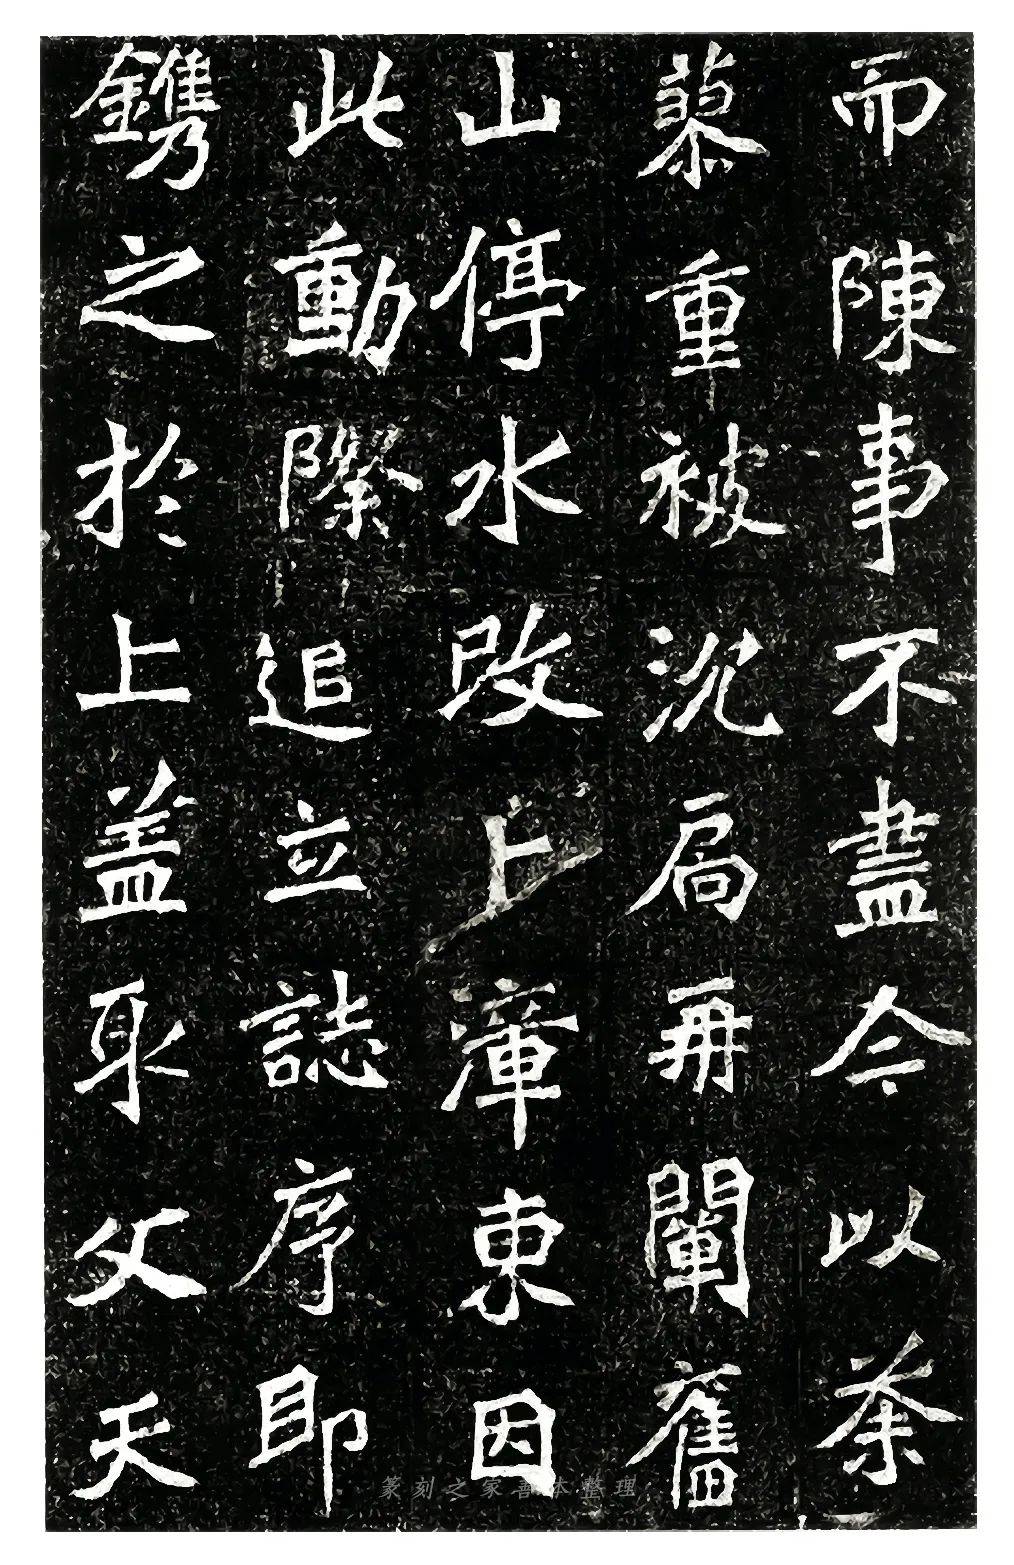 而陳事不盡今以荼
蓼重被沉扃再闡舊
山停水改上庫東因
此動際追立誌序即
鐫之於上蓋取父天
篆刻之家善本整理